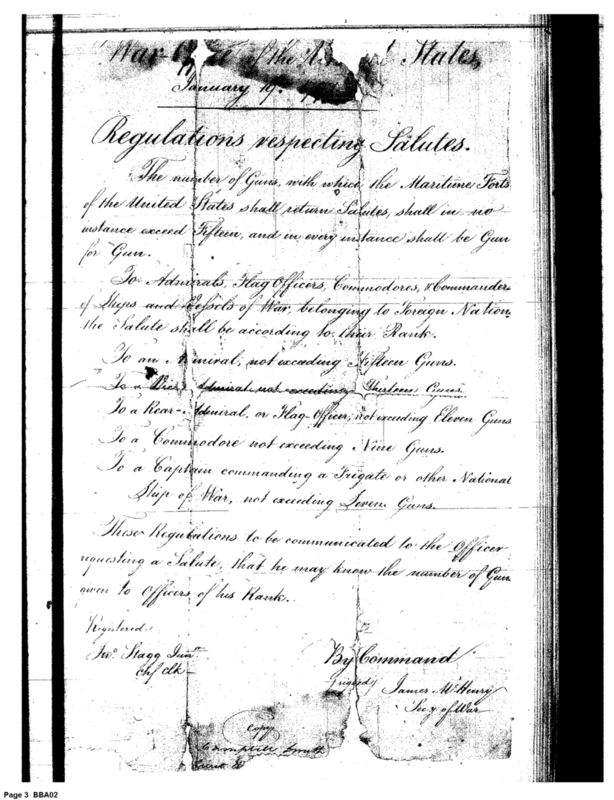 War-Office of the United States,
January 19th
Regulations respecting Salutes.
The number of Guns, with which the Maritime Forts
of the United States shall return Salutes, shall in no
instance exceed Fifteen, and in every instance shall be Gun
for Gun.
To Admirals, Flag Officers, Commodores, & Commanders
of Ships and Vessels of War, belonging to Foreign Nation
the Salute shall be according to their Rank.
To an Admiral, not exceeding Fifteen Guns.
To a Vice Admiral not exceeding Thirteen Guns.
To a Rear-Admiral, or Flag-Officer, not exceeding Eleven Guns
To a Commodore not exceeding Nine Guns.
To a Captain commanding a Frigate or other National
Ship of War, not exceeding Seven Guns.
These Regulations to be communicated to the Officer
requesting a Salute, that he may know the number of Gun
given to Officers of his Rank.
Registered.
Jno. Stagg Junr.
Chf Clk
By Command
Signed James McHenry
Secy of War
Copy
Campbell Smith
Page 3 BBA02